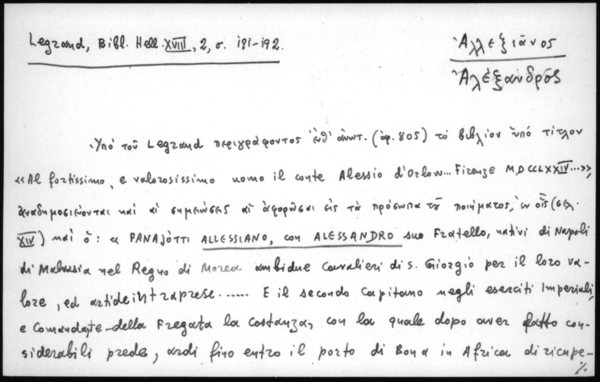 Legrand, Bibl. Hell. XVIII, 2, σ. 191-192.
Ἀλλεξιᾶνος
Ἀλέξανδρος
Ὑπό τοῦ Legrand περιγράφοντος ἐνθ' ἀνωτ. (ἀρ. 805) τό βιβλίον ὑπό τίτλον
«Al fortissimo, e valorosissimo uomo il conte Alessio d'Orlow... Firenze MDCCLXXIV...»,
ἀναδημοσιεύονται καί αἱ σημειώσεις αἱ ἀφορῶσαι εἰς τά πρόσωπα τοῦ ποιήματος, ἐν οἷς (σελ.
XIV) καί ὅ: « PANAJÒTTI ALLESSIANO, con ALESSANDRO suo Fratello, nativi di Napoli
di Malvasia nel Regno di Morea ambidue Cavalieri di S. Giorgio per il loro va-
lore, ed ardite intraprese...... E il secondo Capitano negli eserciti Imperiali,
e Comandante della Fregata la Costanza, con la quale dopo aver fatto con-
siderabili prede, ardì fino entro il porto di Bona in Africa di ricupe-
./.